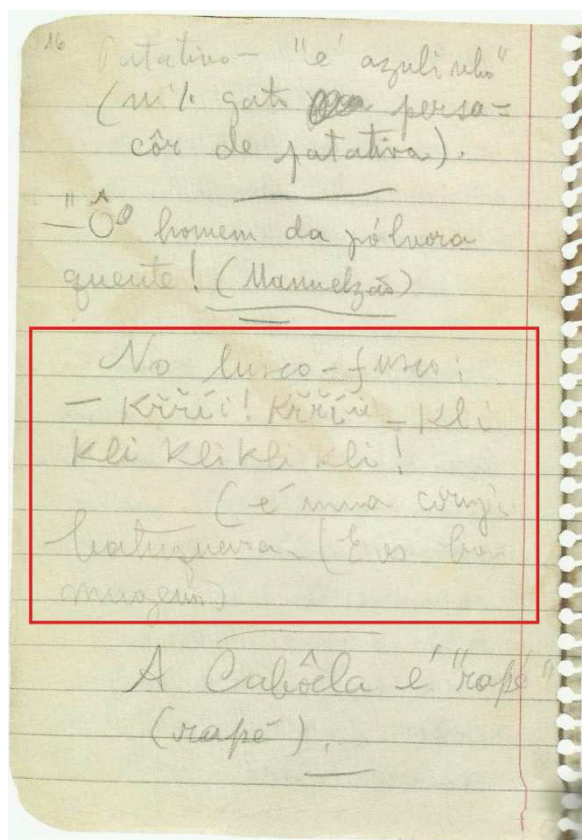 16
Putativo — "é azulinho"
(m/. gato persa =
côr de patativa).
— "Ôº homem da pólvora
quente! (Manuelzão)
No lusco-fusco:
— Křříi! Křříii — Kli
Kli Kli kli kli!
(é uma coruji
batuqueira. (E os bois
mugem)
A Cabôcla é "rapé"
(rapé).